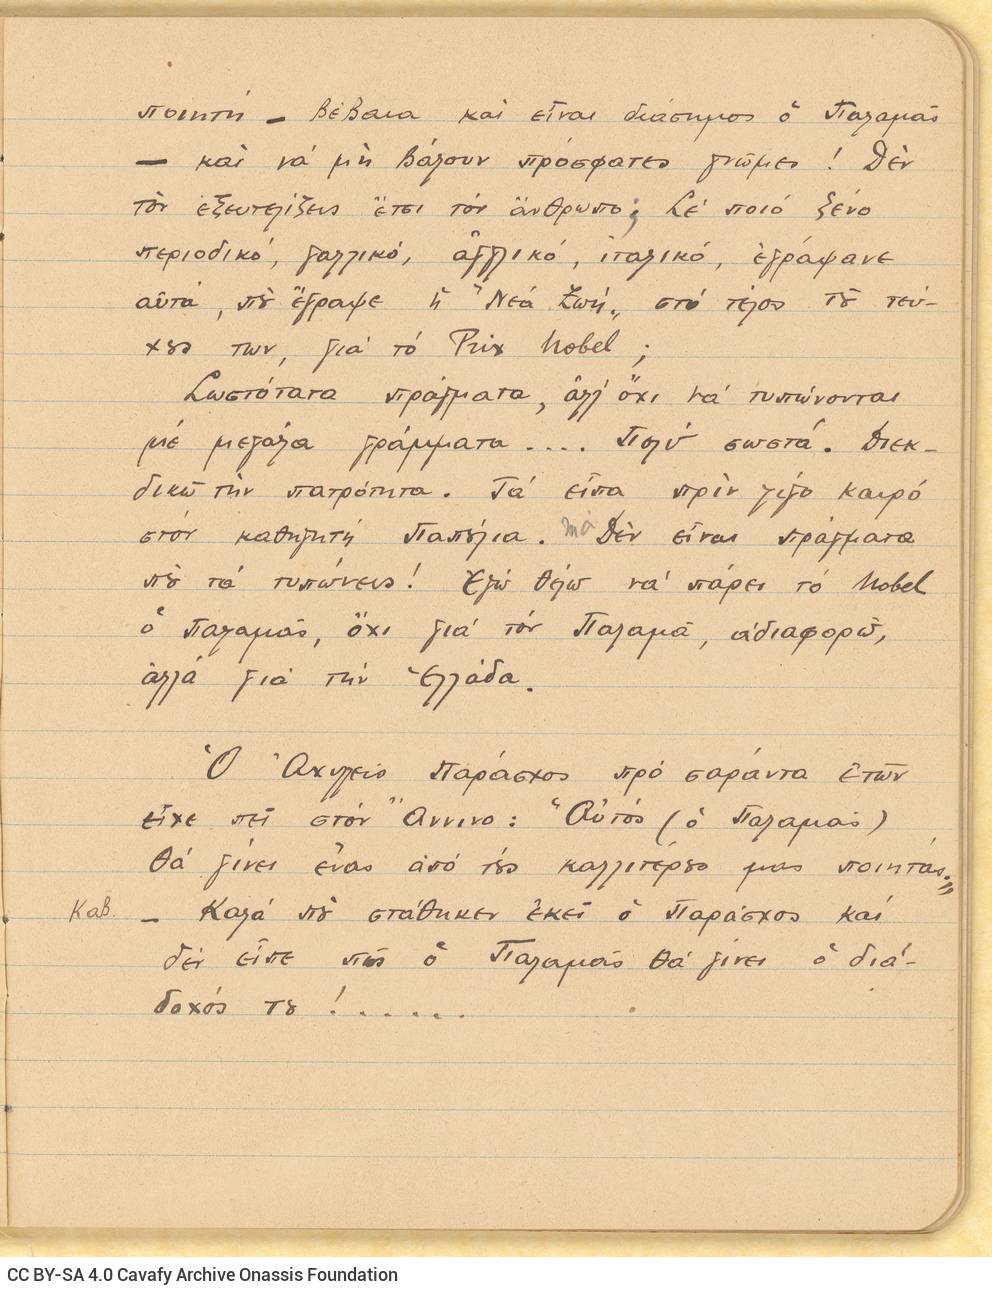 ποιητή — Βέβαια καὶ εἶναι διάσημος ὁ Παλαμᾶς
— καὶ νά μὴ βάλουν πρόσφατες γνῶμες! Δὲν
τὸν ἐξευτελίζεις ἔτσι τὸν ἄνθρωπο; Σέ ποιό ξένο
περιοδικό, γαλλικό, ἀγγλικό, ἰταλικό, ἐγράψανε
αὐτά, πȣ̃ ἔγραψε ἡ "Νέα Ζωή„ στό τέλος τȣ̃ τεύ-
χȣς των, γιά τό Prix Nobel;
Σωστότατα πράγματα, ἀλλ' ὄχι νά τυπώνονται
μέ μεγάλα γράμματα .... Πολύ σωστά. Διεκ-
δικῶ τὴν πατρότητα. Τά εἶπα πρὶν λίγο καιρό
στόν καθηγητή Παπȣ́λια. Μά Δὲν εἶναι πράγματα
πȣ̃ τά τυπώνεις! Ἐγώ θέλω νά πάρει τό Nobel
ὁ Παλαμᾶς, ὄχι γιά τόν Παλαμᾶ, ἀδιαφορῶ,
ἀλλά γιά τήν Ἑλλάδα.
Ὁ Ἀχιλλεύς Παράσχος πρό σαράντα ἐτῶν
εἶχε πεῖ στόν Ἄννινο: "Αὐτός (ὁ Παλαμᾶς)
θά γίνει ἕνας ἀπό τȣ́ς καλλιτέρȣς μας ποιητάς„
Καβ. — Καλά πȣ̃ στάθηκεν ἐκεῖ ὁ Παράσχος καί
δέν εἶπε πῶς ὁ Παλαμᾶς θά γίνει ὁ διά-
δοχός τȣ! ......
CC BY-SA 4.0 Cavafy Archive Onassis Foundation